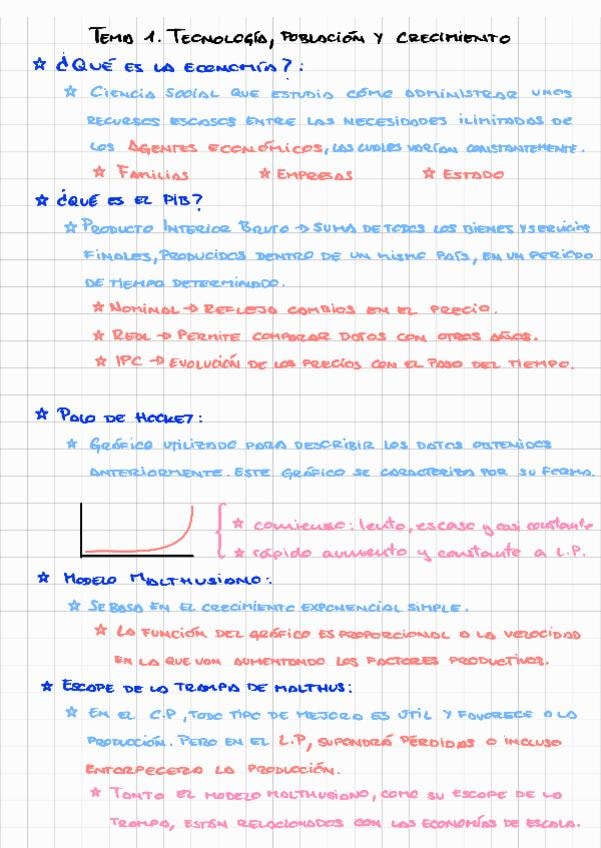 TEMA 1. TECNOLOGÍA, POBLACIÓN Y CRECIMIENTO
☆ ¿QUÉ ES LA ECONOMÍA?:
☆ CIENCIA SOCIAL QUE ESTUDIA CÓMO ADMINISTRAR UNOS
RECURSOS ESCASOS ENTRE LAS NECESIDADES ILIMITADAS DE
LOS AGENTES ECONÓMICOS, LAS CUALES VARÍAN CONSTANTEMENTE.
☆ FAMILIAS ☆ EMPRESAS ☆ ESTADO
☆ ¿QUÉ ES EL PIB?
☆ PRODUCTO INTERIOR BRUTO → SUMA DE TODOS LOS BIENES Y SERVICIOS
FINALES, PRODUCIDOS DENTRO DE UN MISMO PAÍS, EN UN PERIODO
DE TIEMPO DETERMINADO.
☆ NOMINAL → REFLEJA CAMBIOS EN EL PRECIO.
☆ REAL → PERMITE COMPARAR DATOS CON OTROS AÑOS.
☆ IPC → EVOLUCIÓN DE LOS PRECIOS CON EL PASO DEL TIEMPO.
☆ PALO DE HOCKEY:
☆ GRÁFICO UTILIZADO PARA DESCRIBIR LOS DATOS OBTENIDOS
ANTERIORMENTE. ESTE GRÁFICO SE CARACTERIZA POR SU FORMA.
☆ comienzo: lento, escaso y casi constante
☆ rápido aumento y constante a L.P.
☆ MODELO MALTHUSIANO:
☆ SE BASA EN EL CRECIMIENTO EXPONENCIAL SIMPLE.
☆ LA FUNCIÓN DEL GRÁFICO ES PROPORCIONAL A LA VELOCIDAD
EN LA QUE VAN AUMENTANDO LOS FACTORES PRODUCTIVOS.
☆ ESCAPE DE LA TRAMPA DE MALTHUS:
☆ EN EL C.P, TODO TIPO DE MEJORA ES UTIL Y FAVORECE A LA
PRODUCCIÓN. PERO EN EL L.P, SUPONDRÁ PÉRDIDAS O INCLUSO
ENTORPECERÁ LA PRODUCCIÓN.
☆ TANTO EL MODELO MALTHUSIANO, COMO SU ESCAPE DE LA
TRAMPA, ESTÁN RELACIONADOS CON LAS ECONOMÍAS DE ESCALA.